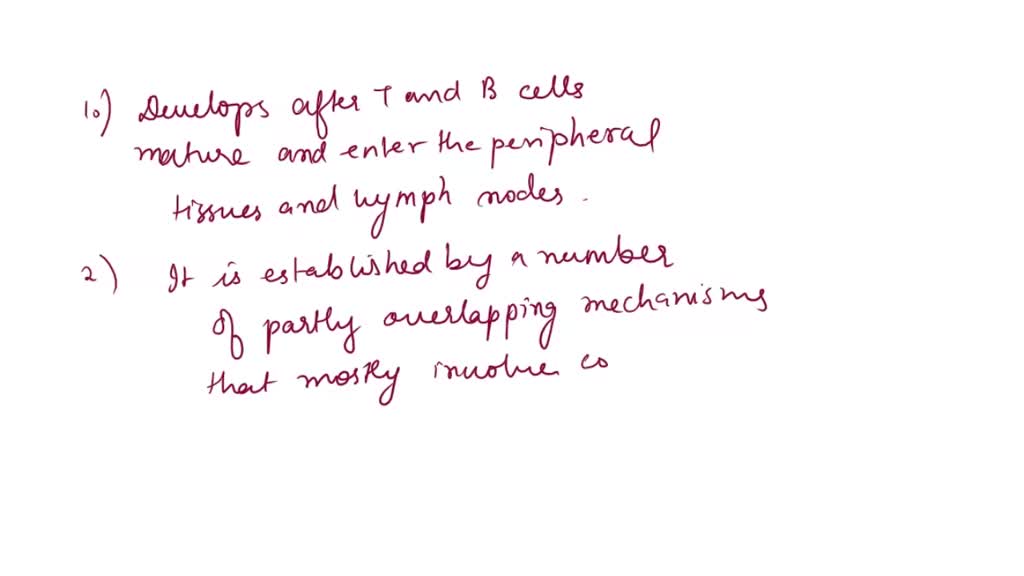 1.) Develops after T and B cells
mature and enter the peripheral
tissues and lymph nodes.
2) It is established by a number
of partly overlapping mechanisms
that mostly involve co